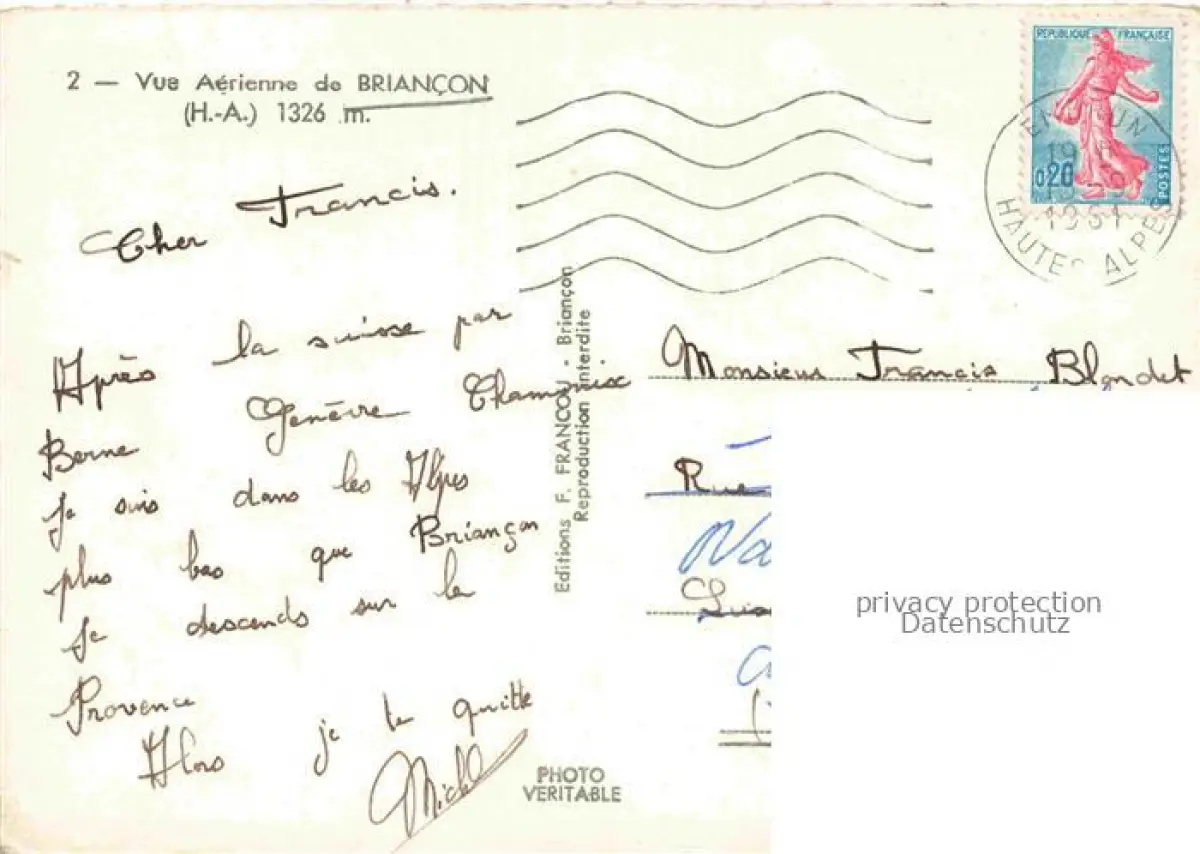 2 — Vue Aérienne de BRIANÇON
(H.-A.) 1326 m.
Cher Francis.
Après la suisse par
Berne Genève Chamonix
je suis dans les Alpes
plus bas que Briançon
Je descends sur la
Provence
Alors je te quitte
Michel
Editions F. FRANCOU - Briançon
Reproduction interdite
PHOTO
VERITABLE
REPUBLIQUE FRANÇAISE
0,20
POSTES
19
1961
HAUTES ALPES
Monsieur Francis Blondet
Rue
privacy protection
Datenschutz